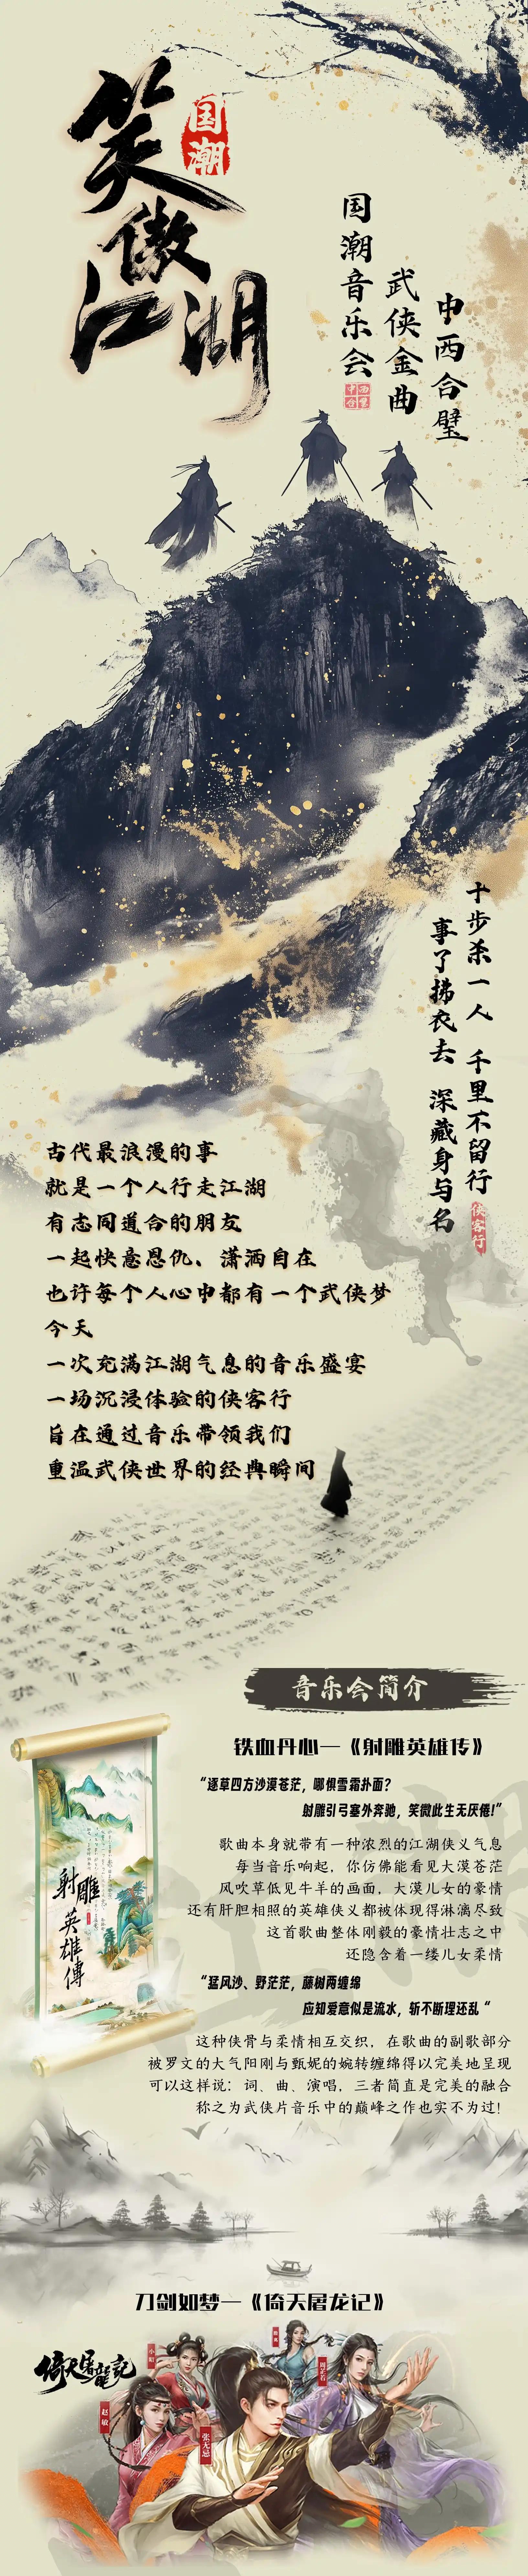 笑傲江湖
国潮
中西合璧
武侠金曲
国潮音乐会
十步杀一人 千里不留行
事了拂衣去 深藏身与名
侠客行
古代最浪漫的事
就是一个人行走江湖
有志同道合的朋友
一起快意恩仇、潇洒自在
也许每个人心中都有一个武侠梦
今天
一次充满江湖气息的音乐盛宴
一场沉浸体验的侠客行
旨在通过音乐带领我们
重温武侠世界的经典瞬间
音乐会简介
铁血丹心—《射雕英雄传》
“逐草四方沙漠苍茫，哪惧雪霜扑面？
射雕引弓塞外奔驰，笑微此生无厌倦!”
歌曲本身就带有一种浓烈的江湖侠义气息
每当音乐响起，你仿佛能看见大漠苍茫
风吹草低见牛羊的画面，大漠儿女的豪情
还有肝胆相照的英雄侠义都被体现得淋漓尽致
这首歌曲整体刚毅的豪情壮志之中
还隐含着一缕儿女柔情
“猛风沙、野茫茫，藤树两缠绵
应知爱意似是流水，斩不断理还乱“
这种侠骨与柔情相互交织，在歌曲的副歌部分
被罗文的大气阳刚与甄妮的婉转缠绵得以完美地呈现
可以这样说：词、曲、演唱，三者简直是完美的融合
称之为武侠片音乐中的巅峰之作也实不为过!
射雕
英雄傳
刀剑如梦—《倚天屠龙记》
倚天屠龍記
小昭
周芷若
赵敏
张无忌